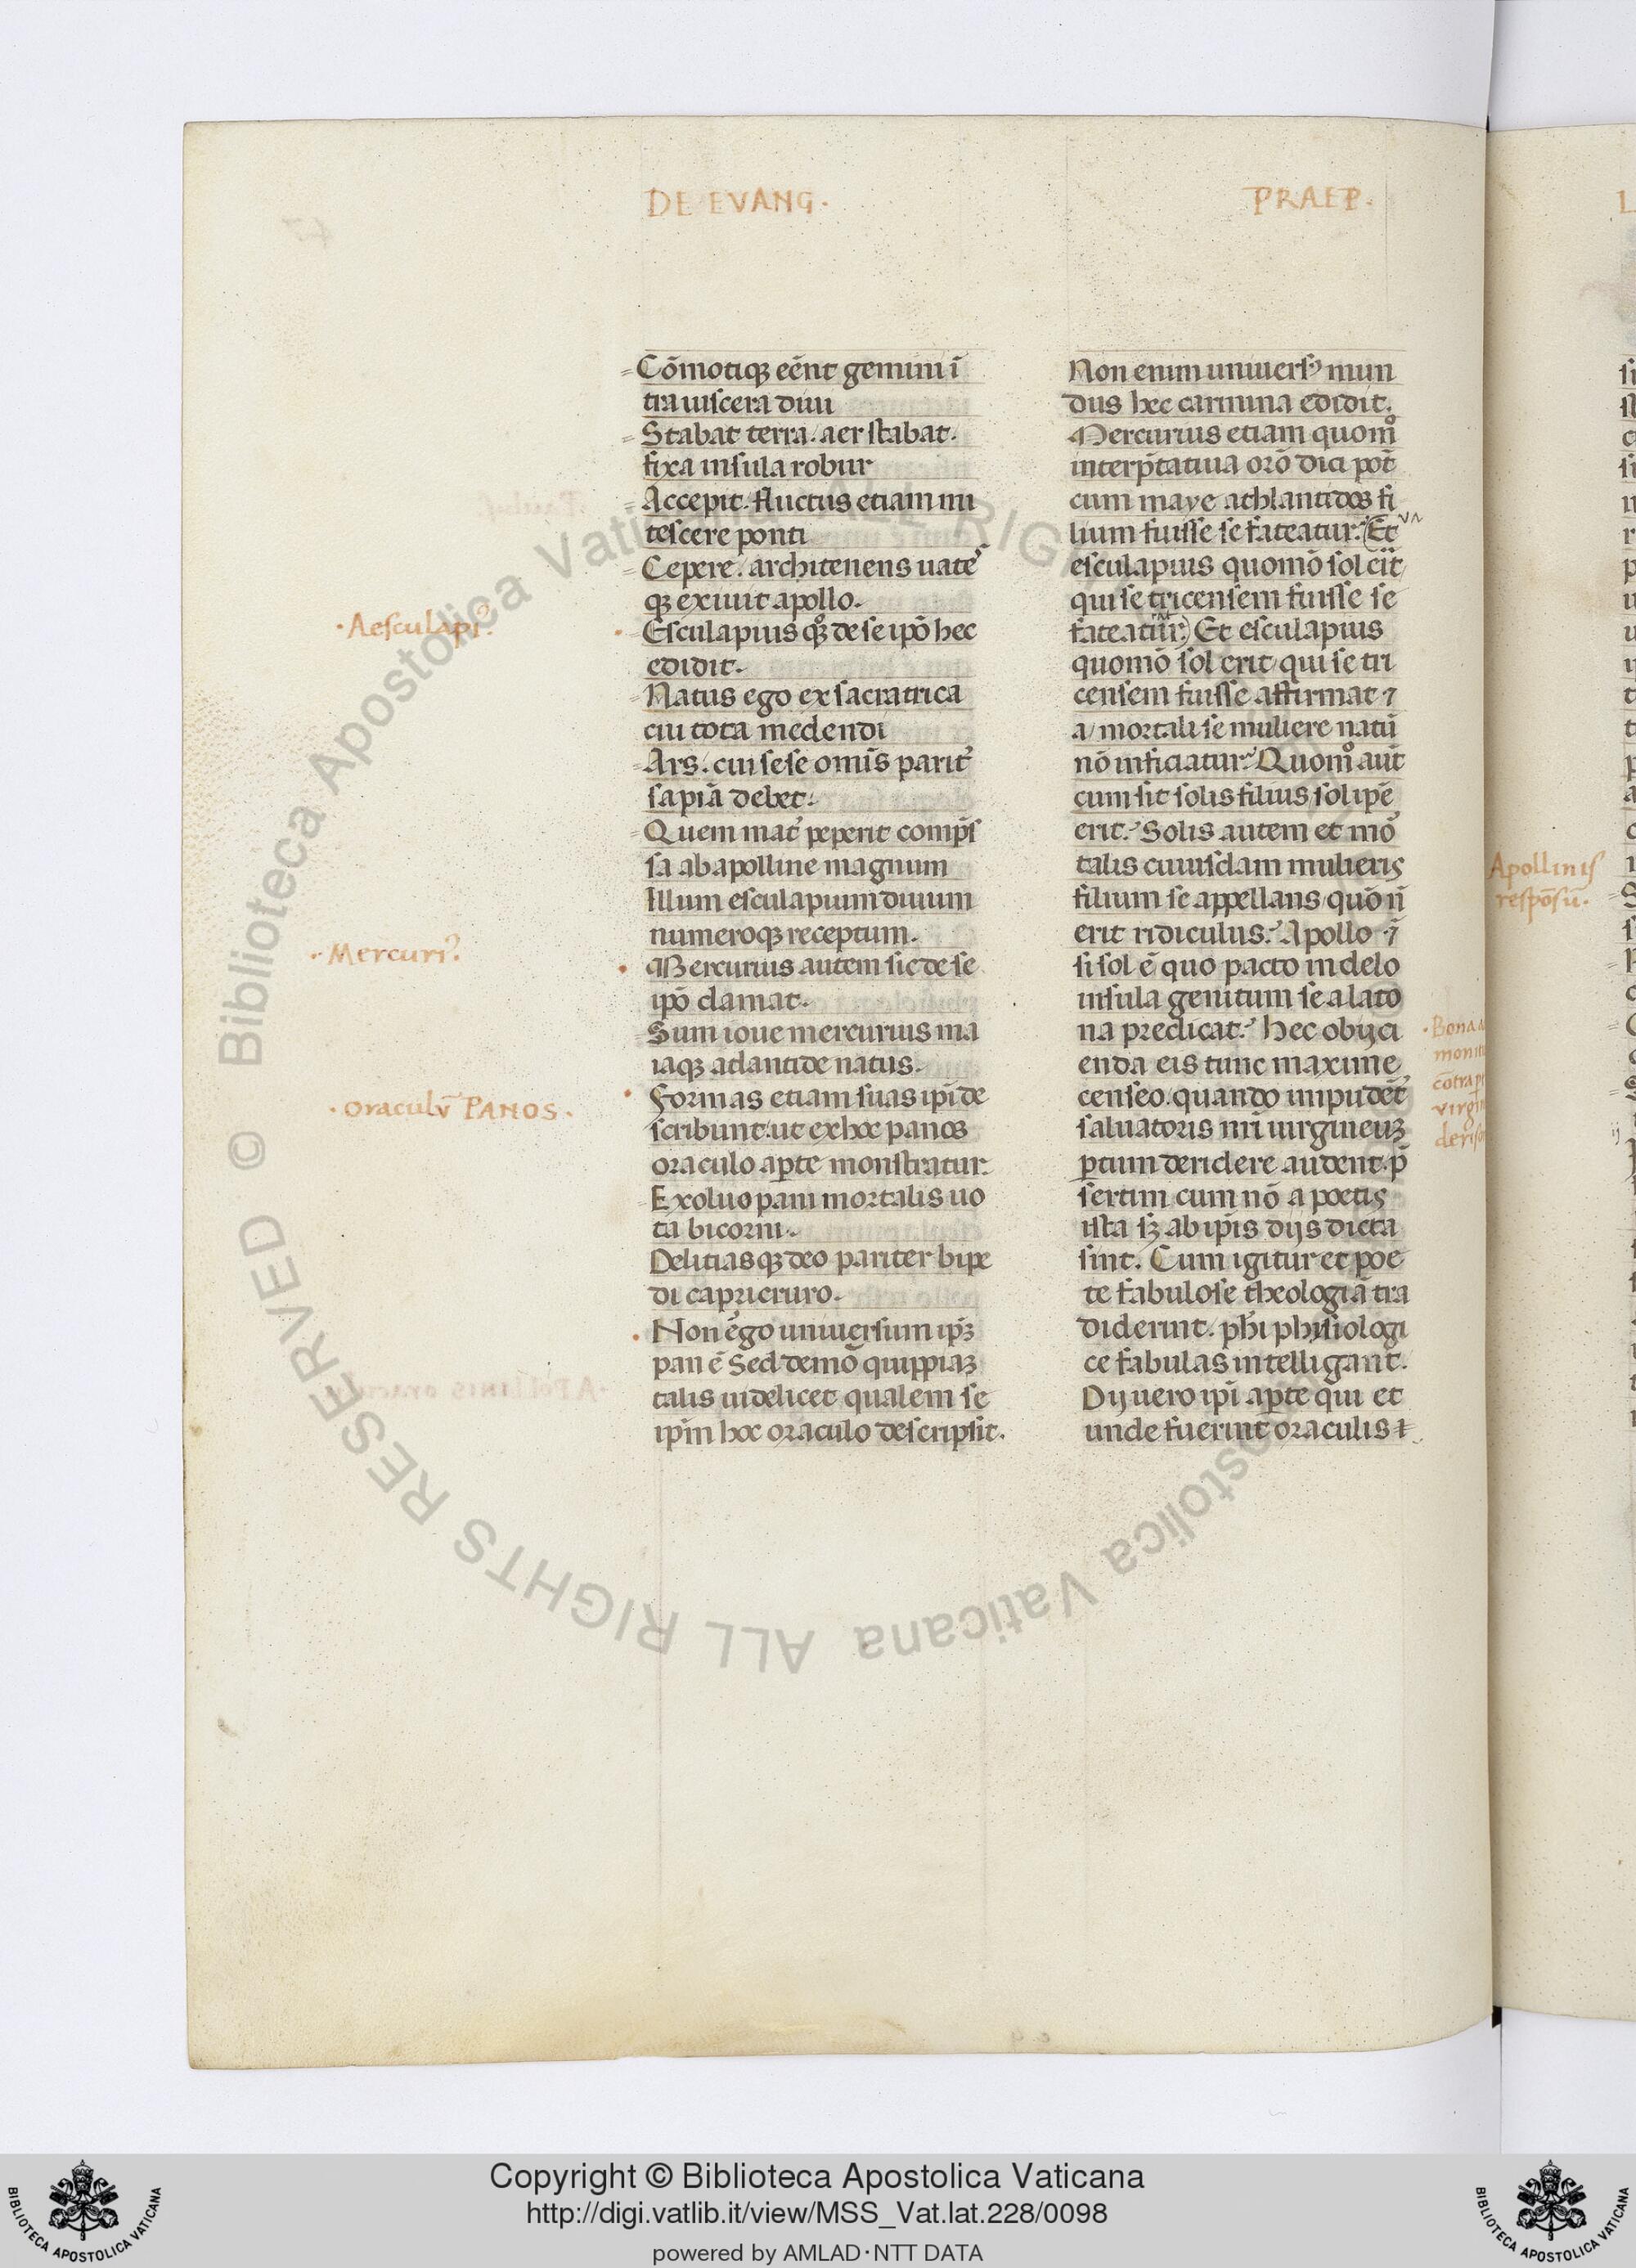 DE EVANG.
PRAEP.
Cōmotiqꝫ eēnt gemini ī
tra uiscera diui
Stabat terra. aer stabat.
fixa insula robur
Accepit. fluctus etiam mi
tescere ponti
Cepere. architenens uate
qꝫ exiuit apollo.
Esculapius qͦꝫ de se ipō hec
edidit.
Natus ego ex sacra trica
cui tota medendi
Ars. cui sese omīs parit᾽
sapiā debet.
Quem mat᾽ peperit comp̄s
sa ab apolline magnum
Illum esculapium diuum
numeroqꝫ receptum.
Mercurius autem sic de se
ipō clamat.
Sum ioue mercurius ma
iaqꝫ atlantide natus.
Formas etiam suas ipī de
scribunt. ut ex hoc panos
oraculo aꝑte monstratur.
Exoluo pani mortalis uo
ta bicorni.
Delitiasqꝫ deo pariter bipe
di capricruro.
Non ēgo uniuersum ip̄ꝫ
pan ē Sed demō quippiaꝫ
talis uidelicet qualem se
ip̄m hoc oraculo descripsit.
·Aesculapiꝰ.
·Mercuriꝰ.
·Oraculū PANOS.
Non enim uniuersꝰ mun
dus hec carmina edidit.
Mercurius etiam quomͦ
interp̄tatiua orō dici pōt
cum maye athlantidos fi
lium fuisse se fateatur. (Et
esculapius quomō sol erit
qui se tricensem fuisse se
fateatur.) Et esculapius
quomō sol erit qui se tri
censem fuisse affirmat ⁊
a mortali se muliere natū
nō inficiatur. Quomͦ aūt
cum sit solis filius sol ipē
erit. Solis autem et mo᾽
talis cuiusdam mulieris
filium se appellans quōn̄
erit ridiculus. Apollo ⁊
si sol ē quo pacto in delo
insula genitum se a lato
na predicat. hec obijci
enda eis tunc maxime
censeo. quando impudēt᾽
saluatoris nr̄i uirgineuꝫ
ꝑtum deridere audent. p̄
sertim cum nō a poetis
ista sꝫ ab ip̄is dijs dicta
sint. Cum igitur et poe
te fabulose theologiā tra
diderint. phī phisiologi
ce fabulas intelligant.
Dij uero ipī aꝑte qui et
unde fuerint oraculis ⁊
Apollinis
respōsū.
Copyright © Biblioteca Apostolica Vaticana
http://digi.vatlib.it/view/MSS_Vat.lat.228/0098
powered by AMLAD·NTT DATA
BIBLIOTECA APOSTOLICA VATICANA
BIBLIOTECA APOSTOLICA VATICANA
© Biblioteca Apostolica Vaticana ALL RIGHTS RESERVED